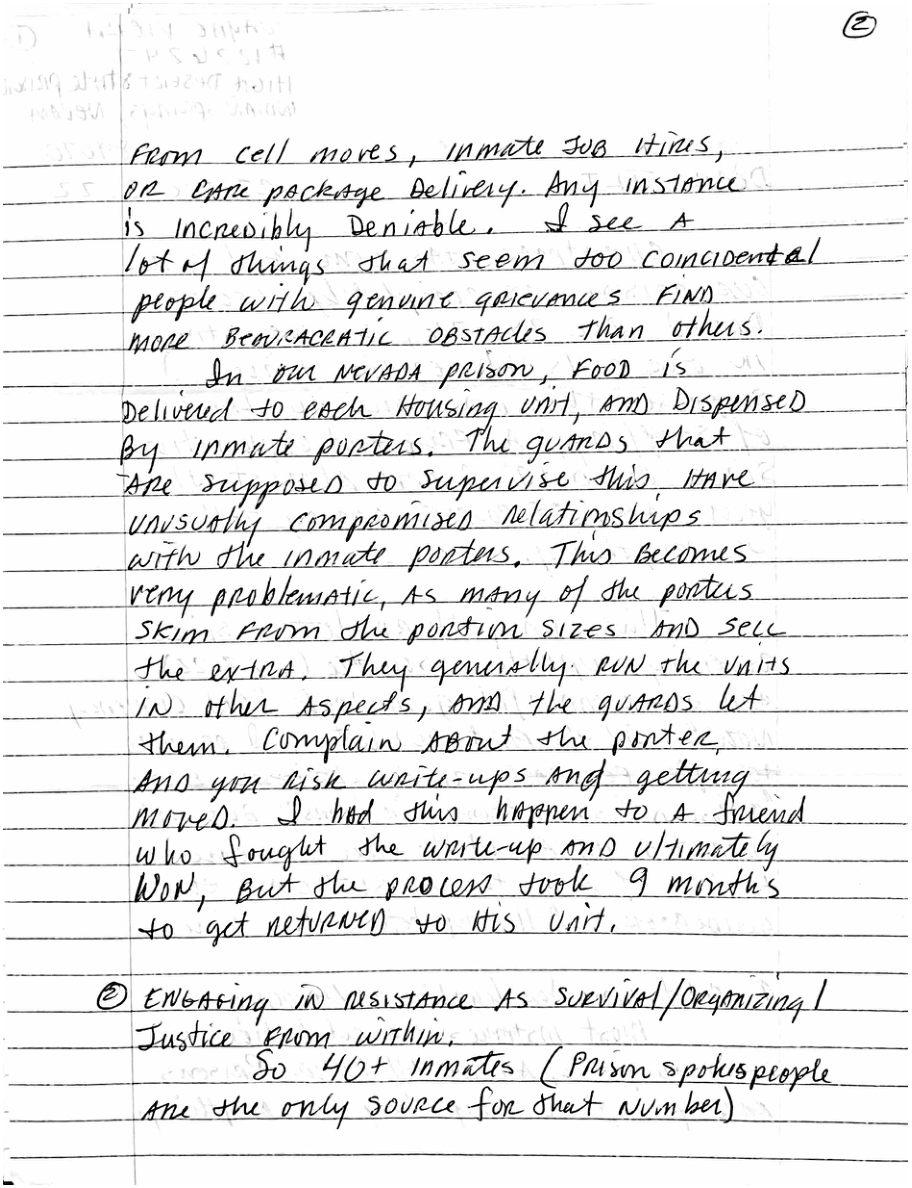 ②
From cell moves, inmate job hires,
or care package delivery. Any instance
is incredibly deniable. I see a
lot of things that seem too coincidental
people with genuine grievances find
more beouracratic obstacles than others.
In our Nevada prison, food is
delivered to each housing unit, and dispensed
by inmate porters. The guards that
are supposed to supervise this have
unusually compromised relationships
with the inmate porters. This becomes
very problematic, as many of the porters
skim from the portion sizes and sell
the extra. They generally run the units
in other aspects, and the guards let
them. Complain about the porter,
and you risk write-ups and getting
moved. I had this happen to a friend
who fought the write-up and ultimately
won, but the process took 9 months
to get returned to his unit.
② Engaging in resistance as survival/organizing/
Justice from within.
So 40+ inmates (Prison spokespeople
are the only source for that number)